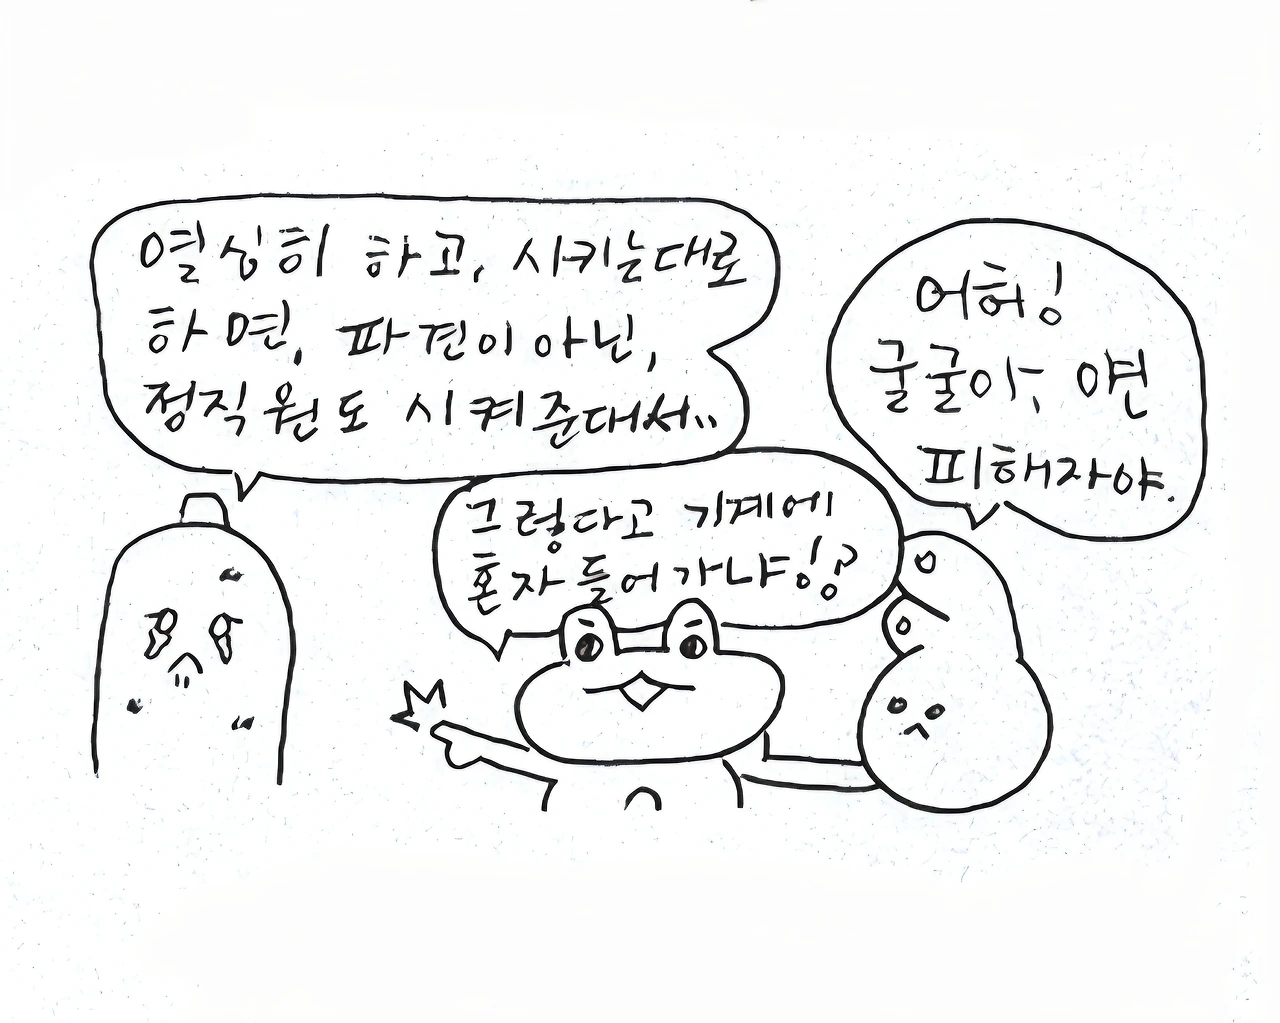 열심히 하고, 시키는대로
하면, 파견이 아닌,
정직원도 시켜준대서..
그렇다고 기계에
혼자 들어가냐잉?
어허잉
굴굴아, 얀
피해자야.